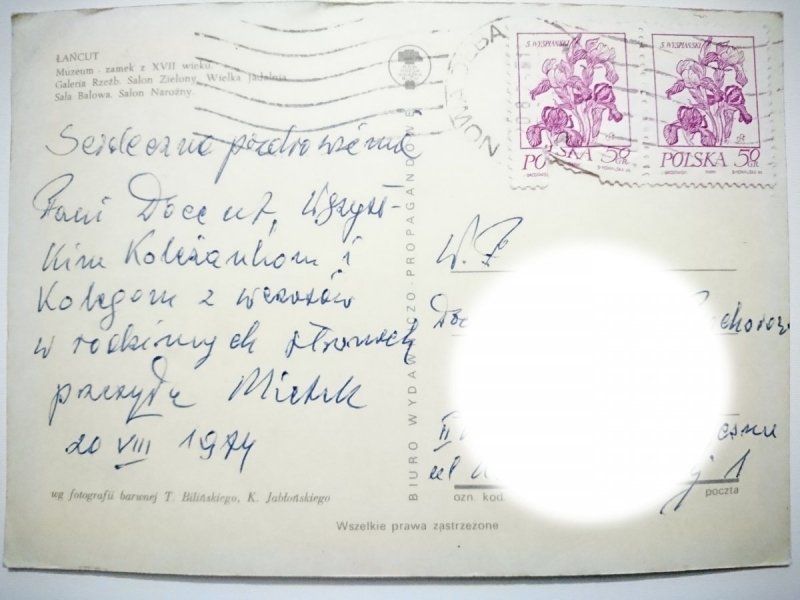 ŁAŃCUT
Muzeum - zamek z XVII wieku.
Galeria Rzeźb. Salon Zielony. Wielka Jadalnia.
Sala Balowa. Salon Narożny.
Serdeczne pozdrowienia
Pani Docent, wszyst-
kim Koleżankom i
Kolegom z wczasów
w rodzinnych stronach
przesyła Mietek
20 VIII 1974
wg fotografii barwnej T. Bilińskiego, K. Jabłońskiego
BIURO WYDAWNICZO-PROPAGANDOWE
S. WYSPIAŃSKI
POLSKA 50 GR
S. WYSPIAŃSKI
POLSKA 50 GR
W. P.
Doc
II
ul 1
ozn. kod. poczta
Wszelkie prawa zastrzeżone